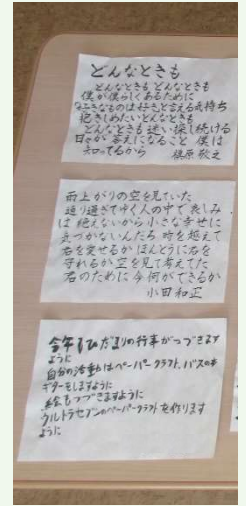 どんなときも
どんなときも どんなときも
僕が僕らしくあるために
好きなものは好きと言える気持ち
抱きしめたいどんなときも
どんなときも 迷い探し続ける
日々が答えになること 僕は
知ってるから 槇原敬之
雨上がりの空を見ていた
通り過ぎてゆく人の中で 哀しみ
は絶えないから 小さな幸せに
気づかないんだろ 時を越えて
君を愛せるか ほんとうに君を
守れるか 空を見て考えてた
君のために 今何ができるか
小田和正
今年もひだまりの行事がつづきます
ように
自分の活動はペーパークラフト、バスの本
ギターをしますように
絵もつづきますように
ウルトラセブンのペーパークラフトを作ります
ように